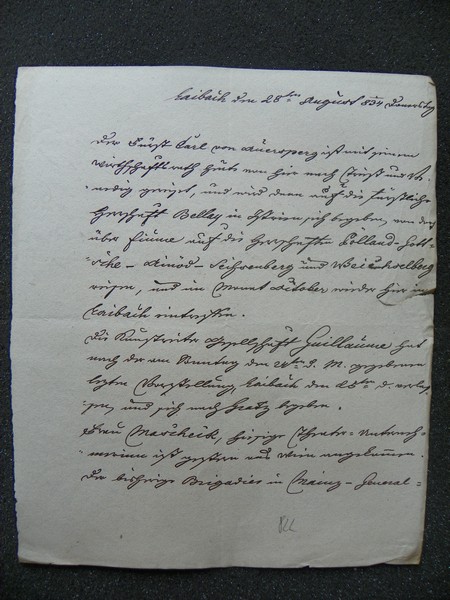 Laibach den 28ten August 834 Donerstag
Der Fürst Carl von Auersperg ist mit seinem
Wirthschaftsrath heute von hier nach Triest und Ve=
nedig gereist, und wird dann auf die fürstliche
Herschaft Bellay in Istrien sich begeben, von dort
über Fiume auf die Herschaften Pölland-Gott=
sche - Ainöd - Seisenberg und Weichselberg
reisen, und im Monat October wieder hier in
Laibach eintreffen.
Die Kunstreiter Gesellschaft Guillaume hat
nach der am Sonntag den 24ten d. M. gegebenen
letzten Vorstellung, Laibach den 26ten d. verlas=
sen, und sich nach Gratz begeben.
Frau Mascheck, hiesige Theater-Unterneh=
merinn ist gestern aus Wien angekommen.
Der bisherige Brigadier in Mainz - General=